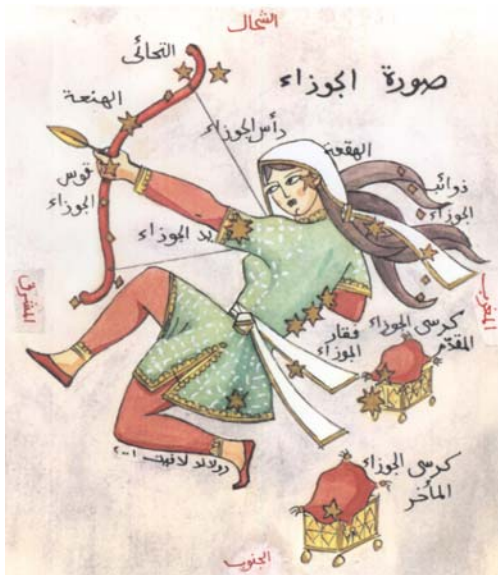 الشمال
التحائى
صورة الجوزاء
الهنعة
رأس الجوزاء
الهقعة
ذوائب
الجوزاء
قوس
الجوزاء
يد الجوزاء
المشرق
المغرب
كرسى الجوزاء
المقدم
فقار
الجوزاء
لافيت
كرسى الجوزاء
المأخر
الجنوب